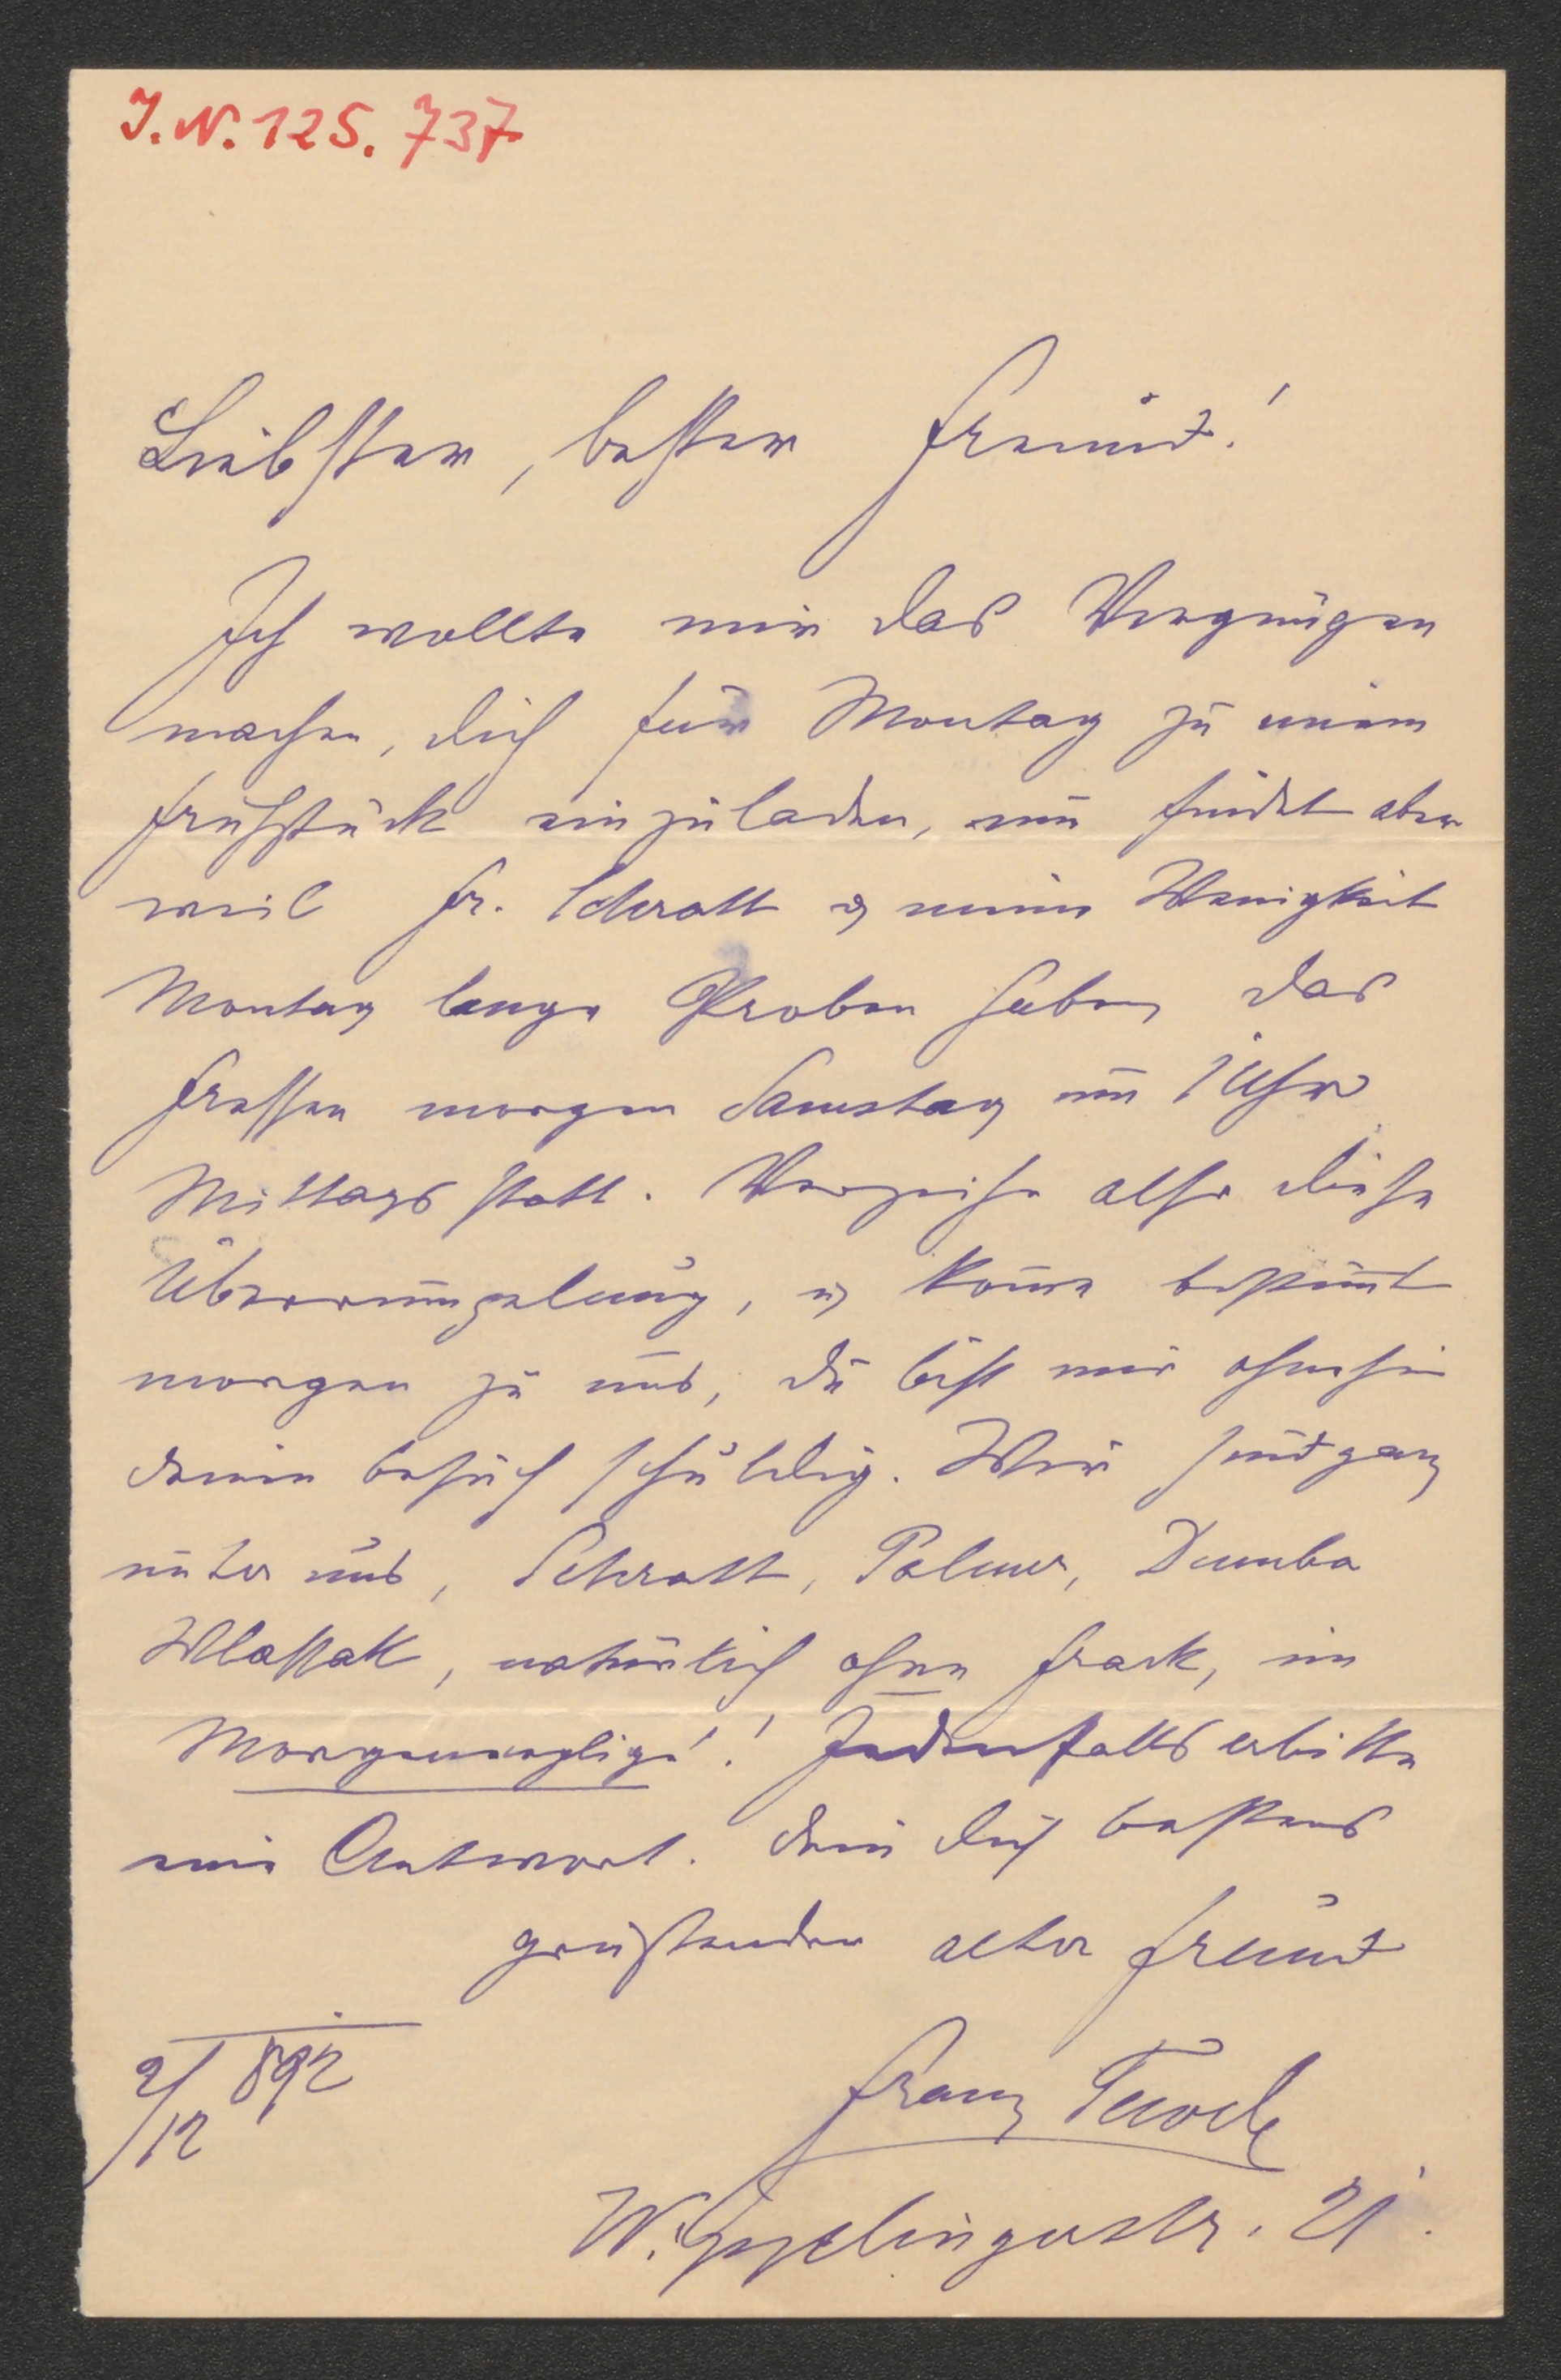 J.N. 125.737
Liebster, bester Freund!
Ich wollte mir das Vergnügen
machen, dich für Montag zu einem
Frühstück einzuladen, nun findet aber
weil Fr. Schratt & meine Wenigkeit
Montag lange Proben haben, das
Fressen morgen Samstag um 1 Uhr
Mittags statt. Verzeihe also diese
Überrumpelung, & kom̅e bestim̅t
morgen zu uns, du bist mir ohnehin
deinen Besuch schuldig. Wir sind ganz
unter uns, Schratt, Palmer, Dumba
Wlassak, natürlich ohne Frack, im
Morgennegligé! Jedenfalls erbitte
eine Antwort. Dein dich bestens
grüßender alter Freund
2/12 892
Franz
Wipplingerstr. 21.